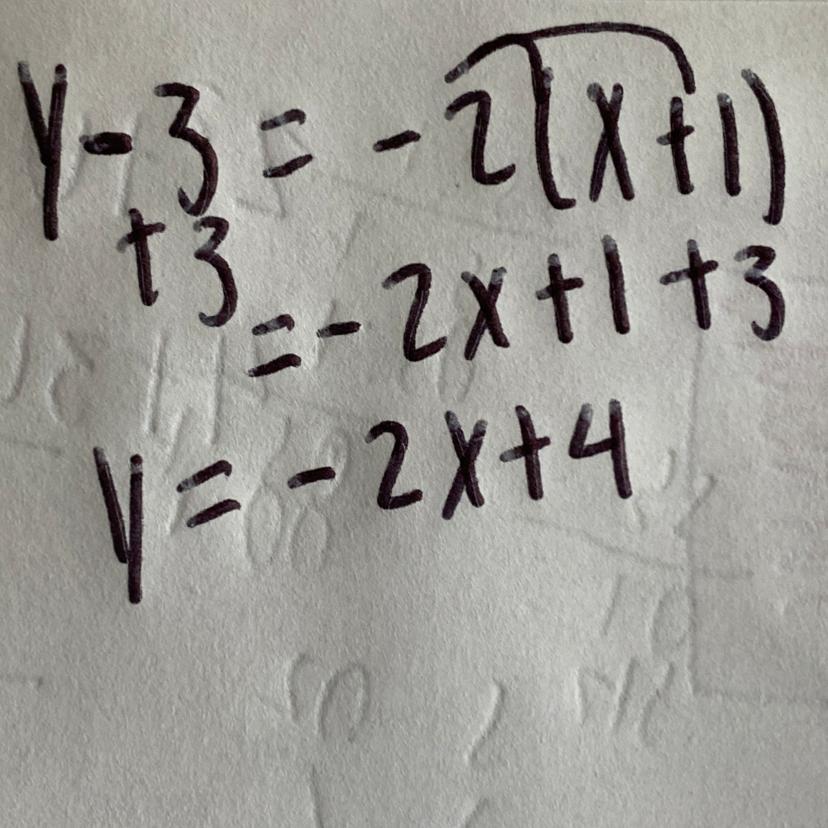 y - 3 = - 2(x + 1)
+3
= - 2x + 1 + 3
y = - 2x + 4